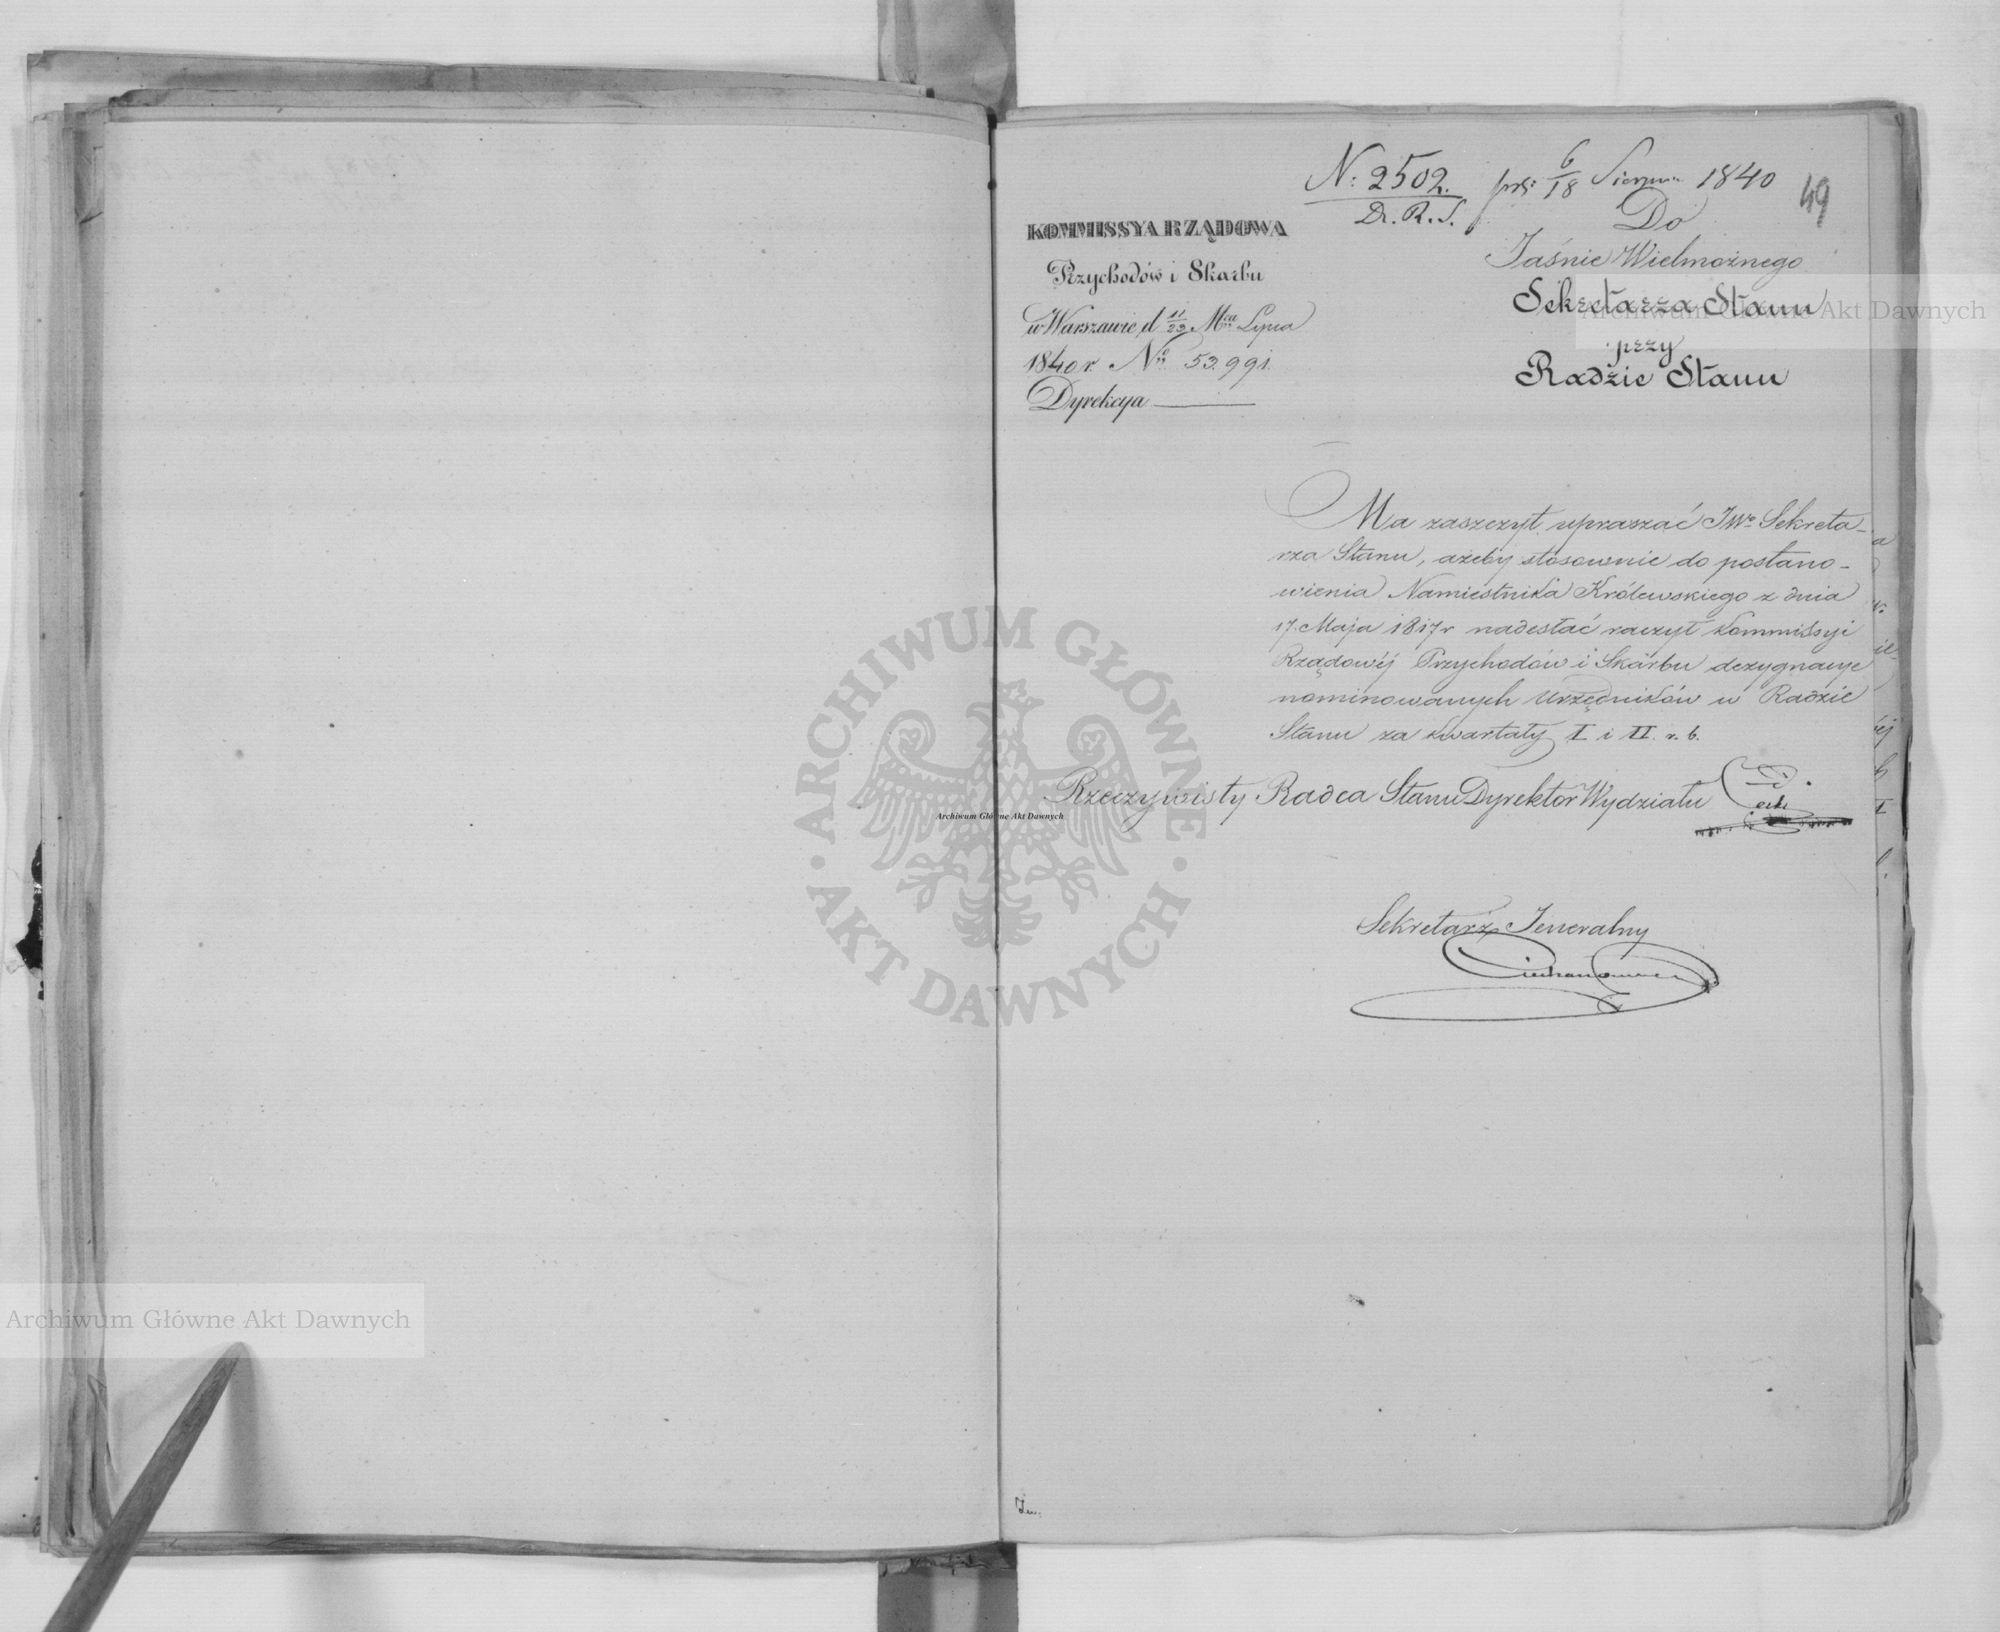 N: 2502.
Dz. R. S.
prs: 6/18 Sierpnia 1840
49
KOMMISSYA RZĄDOWA
Przychodów i Skarbu
w Warszawie, d 11/23 Mca Lipca
1840 r. No 53,991.
Dyrekcya
Do
Jaśnie Wielmożnego
Sekretarza Stanu
przy
Radzie Stanu
Ma zaszczyt upraszać JWo Sekreta-
rza Stanu, ażeby stosownie do postano-
wienia Namiestnika Królewskiego z dnia
17. Maja 1817 r nadesłać raczył Kommissyi
Rządowéj Przychodów i Skarbu dezygnacye
nominowanych Urzędników w Radzie
Stanu za kwartały I i II. r. b.
Rzeczywisty Radca Stanu Dyrektor Wydziału
Sekretarz Jeneralny
Archiwum Główne Akt Dawnych
Archiwum Główne Akt Dawnych
Archiwum Główne Akt Dawnych
ARCHIWUM GŁÓWNE
AKT DAWNYCH